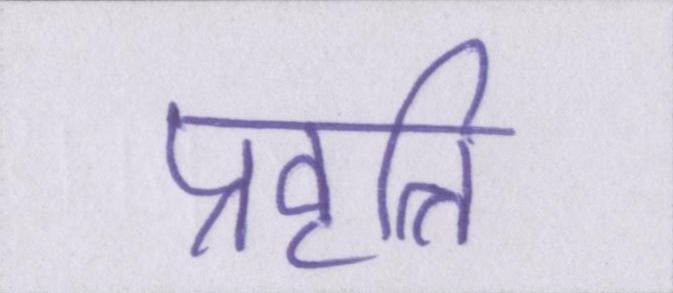 प्रवृत्ति